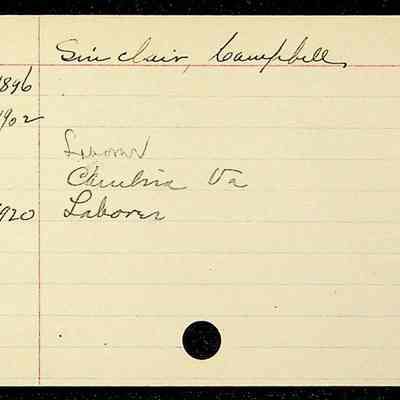 Sinclair, Campbell
1896
1902
Laborer
Cambria Va
1920 Laborer